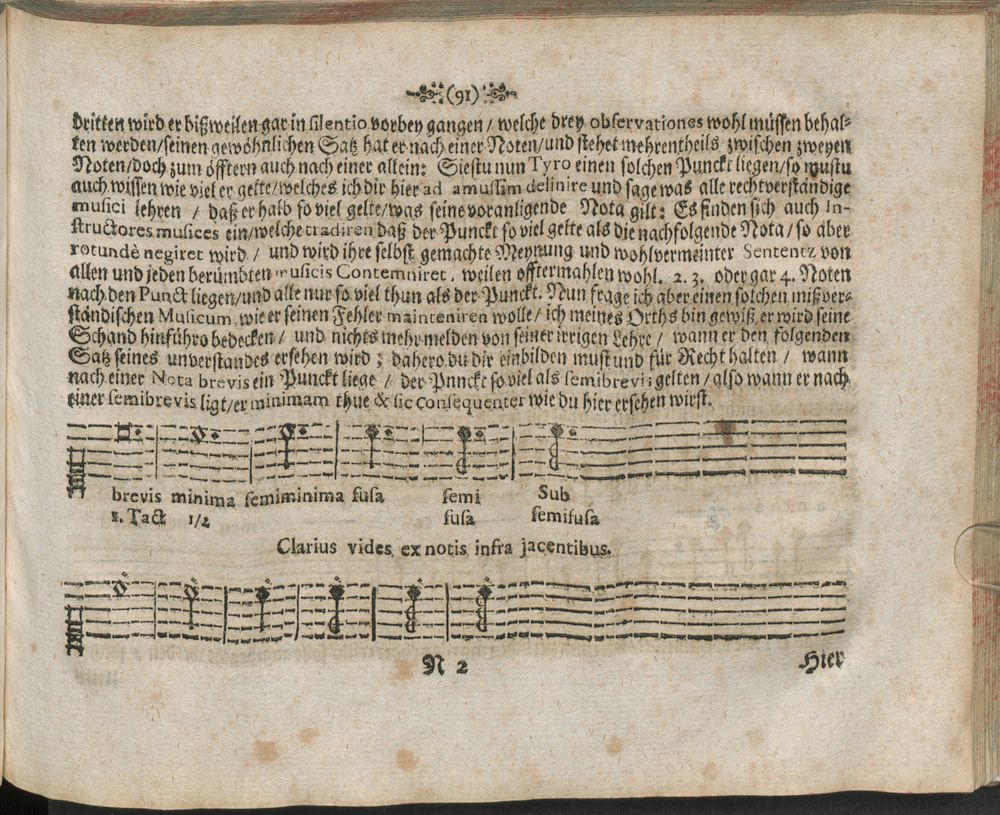 (91)
dritten wird er bißweilen gar in silentio vorbey gangen / welche drey observationes wohl müssen behal-
ten werden/seinen gewöhnlichen Satz hat er nach einer Noten/und stehet mehrentheils zwischen zweyen
Noten/doch zum öfftern auch nach einer allein: Siestu nun Tyro einen solchen Punckt liegen/so mustu
auch wissen wie viel er gelte/welches ich dir hier ad amussim delinire und sage was alle rechtverständige
musici lehren / daß er halb so viel gelte/was seine voranligende Nota gilt: Es finden sich auch In-
structores musices ein/welche tradiren daß der Punckt so viel gelte als die nachfolgende Nota/so aber
rotundè negiret wird / und wird ihre selbst gemachte Meynung und wohlvermeinter Sententz von
allen und jeden berümbten musicis Contemniret, weilen offtermahlen wohl. 2. 3. oder gar 4. Noten
nach den Punct liegen/und alle nur so viel thun als der Punckt. Nun frage ich aber einen solchen mißver-
ständischen Musicum, wie er seinen Fehler mainteniren wolle / ich meines Orths bin gewiß er wird seine
Schand hinführo bedecken / und nichts mehr melden von seiner irrigen Lehre / wann er den folgenden
Satz seines unverstandes ersehen wird; dahero du dir einbilden must und für Recht halten / wann
nach einer Nota brevis ein Punckt liege / der Pnnckt so viel als semibrevis gelten / also wann er nach
einer semibrevis ligt/er minimam thue & sic consequenter wie du hier ersehen wirst.
brevis minima semiminima fusa semi Sub
1. Tact 1/2 fusa semifusa
Clarius vides ex notis infra jacentibus.
N 2 Hier